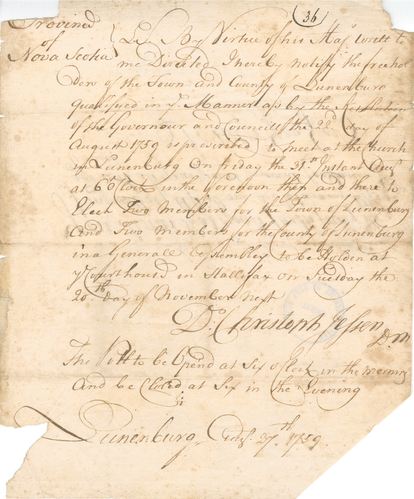 36
Province of
Nova Scotia
Ss By Virtue of his Maj Writt to
me Directed I hereby notify the freehol
ders of the Town and County of Lunenburg
Qualifyed in y Manner as by the Resolution
of the Governour and Council of the 22d day of
August 1759 is prescribed to meet at the Church
in Lunenburg On friday the 31st Instant
at 6 oClock in the forenoon then and there to
Elect Two Members for the Town of Lunenburg
And Two Members for the County of Lunenburg
in a Generall Assembley to be Holden at
y Courthouse in Hallifax on Tuesday the
20th day of November next
D. Christoph Jessen
D.
The Poll to be Opend at Six oClock in the morning
And be Closed at Six in the Evening
Lunenburg 27th 1759